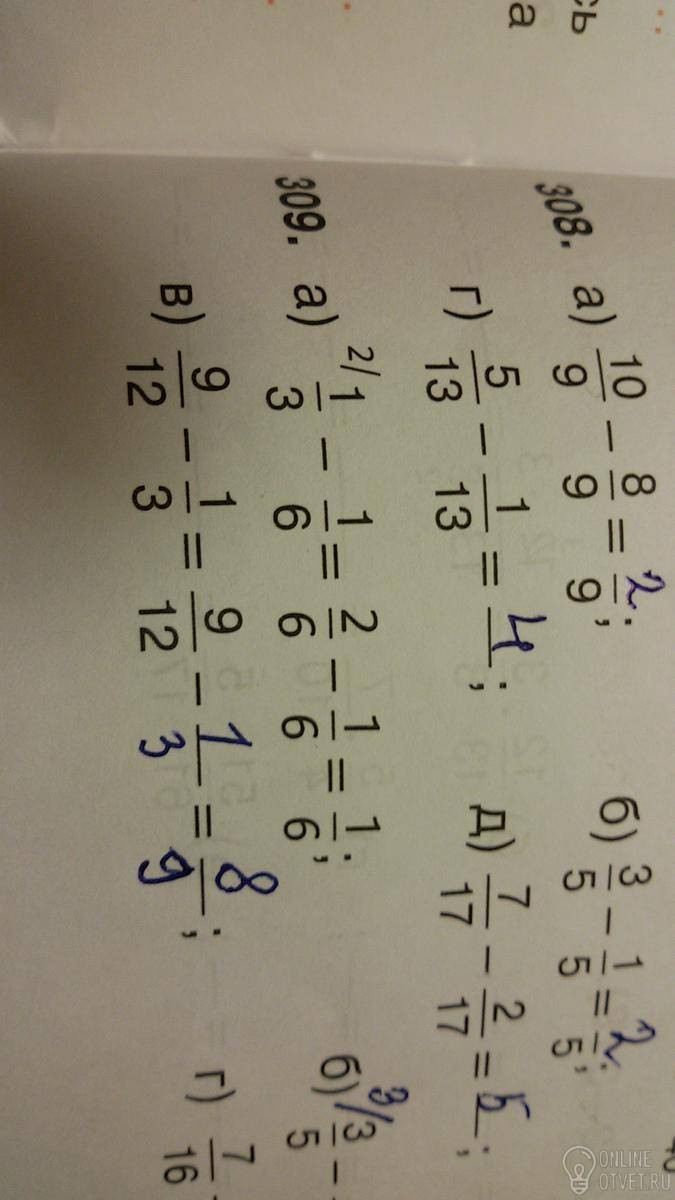 сь
а
308. а) 10/9 − 8/9 = 2/9; б) 3/5 − 1/5 = 2/5;
г) 5/13 − 1/13 = 4/ ; д) 7/17 − 2/17 = 5/ ;
309. а) 2/ 1/3 − 1/6 = 2/6 − 1/6 = 1/6; б) 3/ 3/5 −
в) 9/12 − 1/3 = 9/12 − 1/3 = 8/9; г) 7/16
ONLINE
OTVET.RU